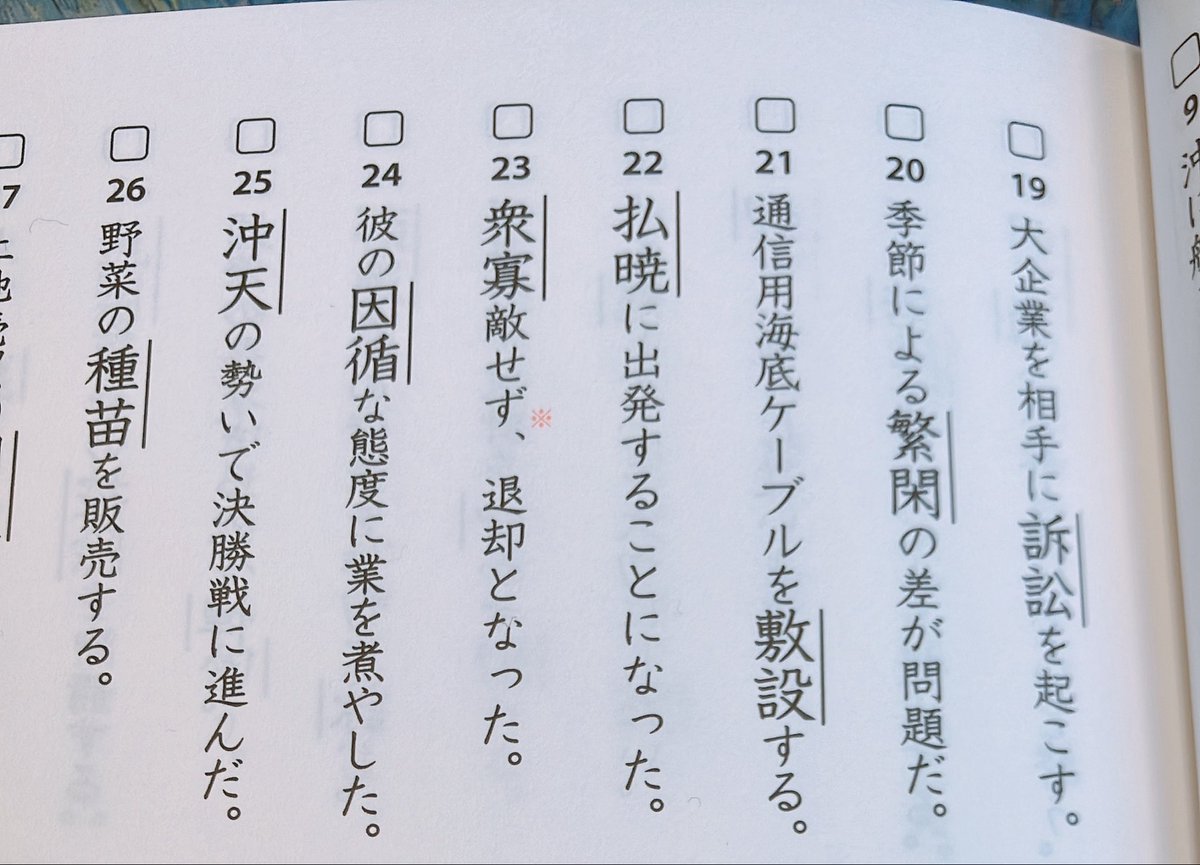 19 大企業を相手に訴訟を起こす。
20 季節による繁閑の差が問題だ。
21 通信用海底ケーブルを敷設する。
22 払暁に出発することになった。
23 衆寡敵せず、※退却となった。
24 彼の因循な態度に業を煮やした。
25 沖天の勢いで決勝戦に進んだ。
26 野菜の種苗を販売する。